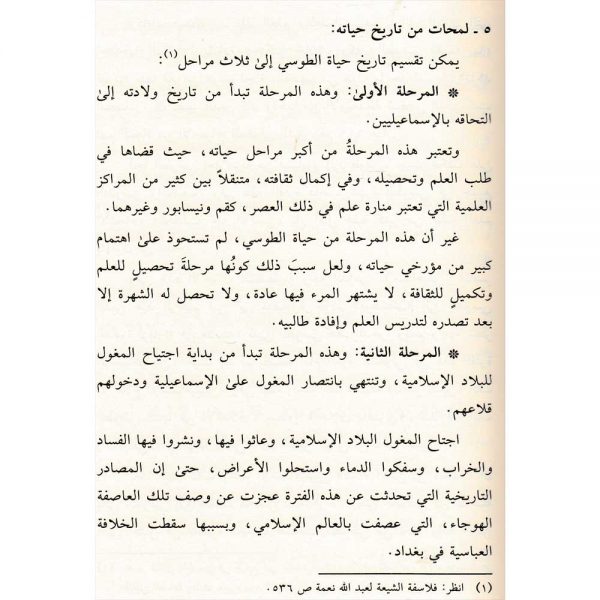 ٥ ـ لمحات من تاريخ حياته:
يمكن تقسيم تاريخ حياة الطوسي إلىٰ ثلاث مراحل(١):
* المرحلة الأولىٰ: وهذه المرحلة تبدأ من تاريخ ولادته إلىٰ
التحاقه بالإسماعيليين.
وتعتبر هذه المرحلةُ من أكبر مراحل حياته، حيث قضاها في
طلب العلم وتحصيله، وفي إكمال ثقافته، متنقلاً بين كثير من المراكز
العلمية التي تعتبر منارة علم في ذلك العصر، كقم ونيسابور وغيرهما.
غير أن هذه المرحلة من حياة الطوسي، لم تستحوذ علىٰ اهتمام
كبير من مؤرخي حياته، ولعل سببَ ذلك كونُها مرحلةَ تحصيلٍ للعلم
وتكميلٍ للثقافة، لا يشتهر المرء فيها عادة، ولا تحصل له الشهرة إلا
بعد تصدره لتدريس العلم وإفادة طالبيه.
* المرحلة الثانية: وهذه المرحلة تبدأ من بداية اجتياح المغول
للبلاد الإسلامية، وتنتهي بانتصار المغول علىٰ الإسماعيلية ودخولهم
قلاعهم.
اجتاح المغول البلاد الإسلامية، وعاثوا فيها، ونشروا فيها الفساد
والخراب، وسفكوا الدماء واستحلوا الأعراض، حتىٰ إن المصادر
التاريخية التي تحدثت عن هذه الفترة عجزت عن وصف تلك العاصفة
الهوجاء، التي عصفت بالعالم الإسلامي، وبسببها سقطت الخلافة
العباسية في بغداد.
(١) انظر: فلاسفة الشيعة لعبد الله نعمة ص ٥٣٦.